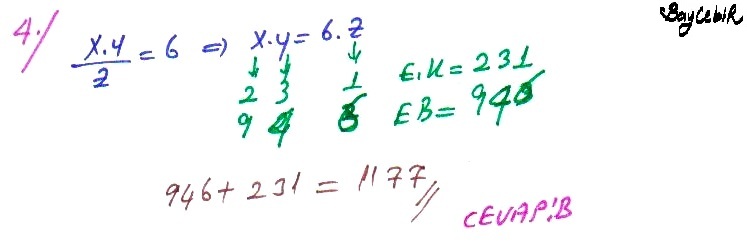 BayCebiR
4./ x.y/z = 6 ⇒ x.y = 6.z
↓ ↓ ↓
2 3 1 E.K = 231
9 4 6 EB = 946
946 + 231 = 1177//
CEVAP:B